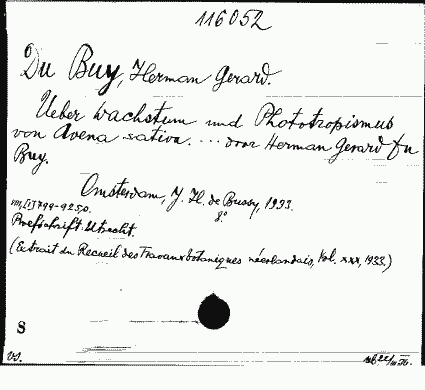 116052
Du Buy, Herman Gerard.
Ueber Wachstum und Phototropismus
von Avena sativa. ... door Herman Gerard du
Buy.
Amsterdam, J. H. de Bussy, 1933.
VIII, [1] 799-925 p. 8º
Proefschrift-Utrecht.
(Extrait du Recueil des Travaux botaniques néerlandais, Vol. XXX, 1933.)
S
vs.